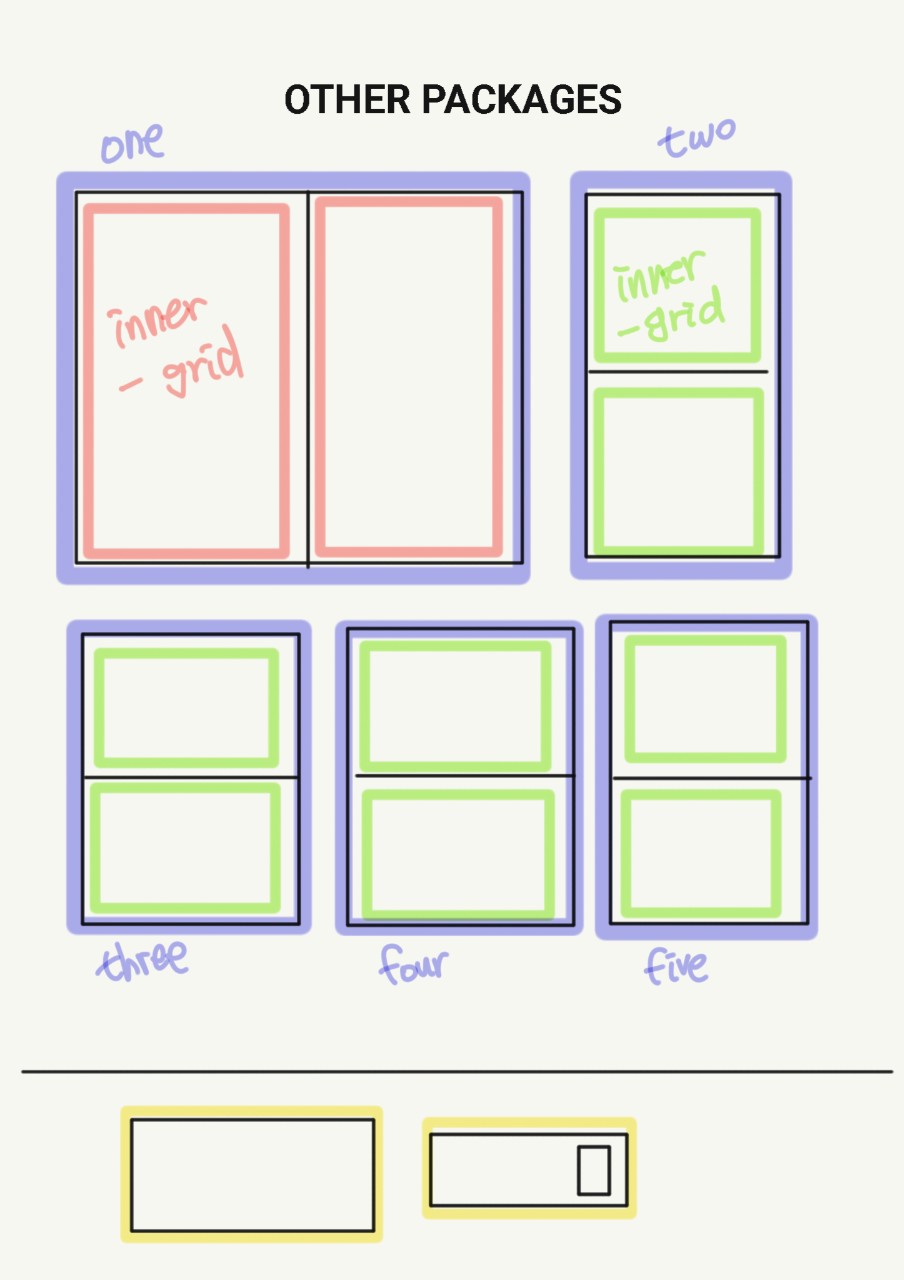 OTHER PACKAGES
one
two
inner
- grid
inner
-grid
three
four
five